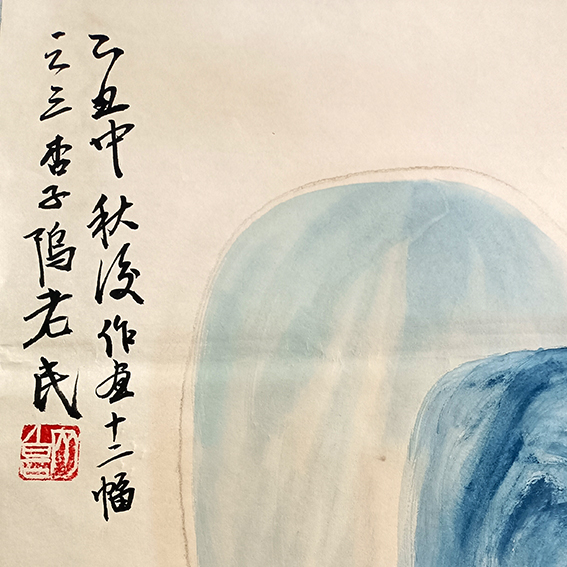 乙丑中秋後作畫十二幅
之三杏子隖老民